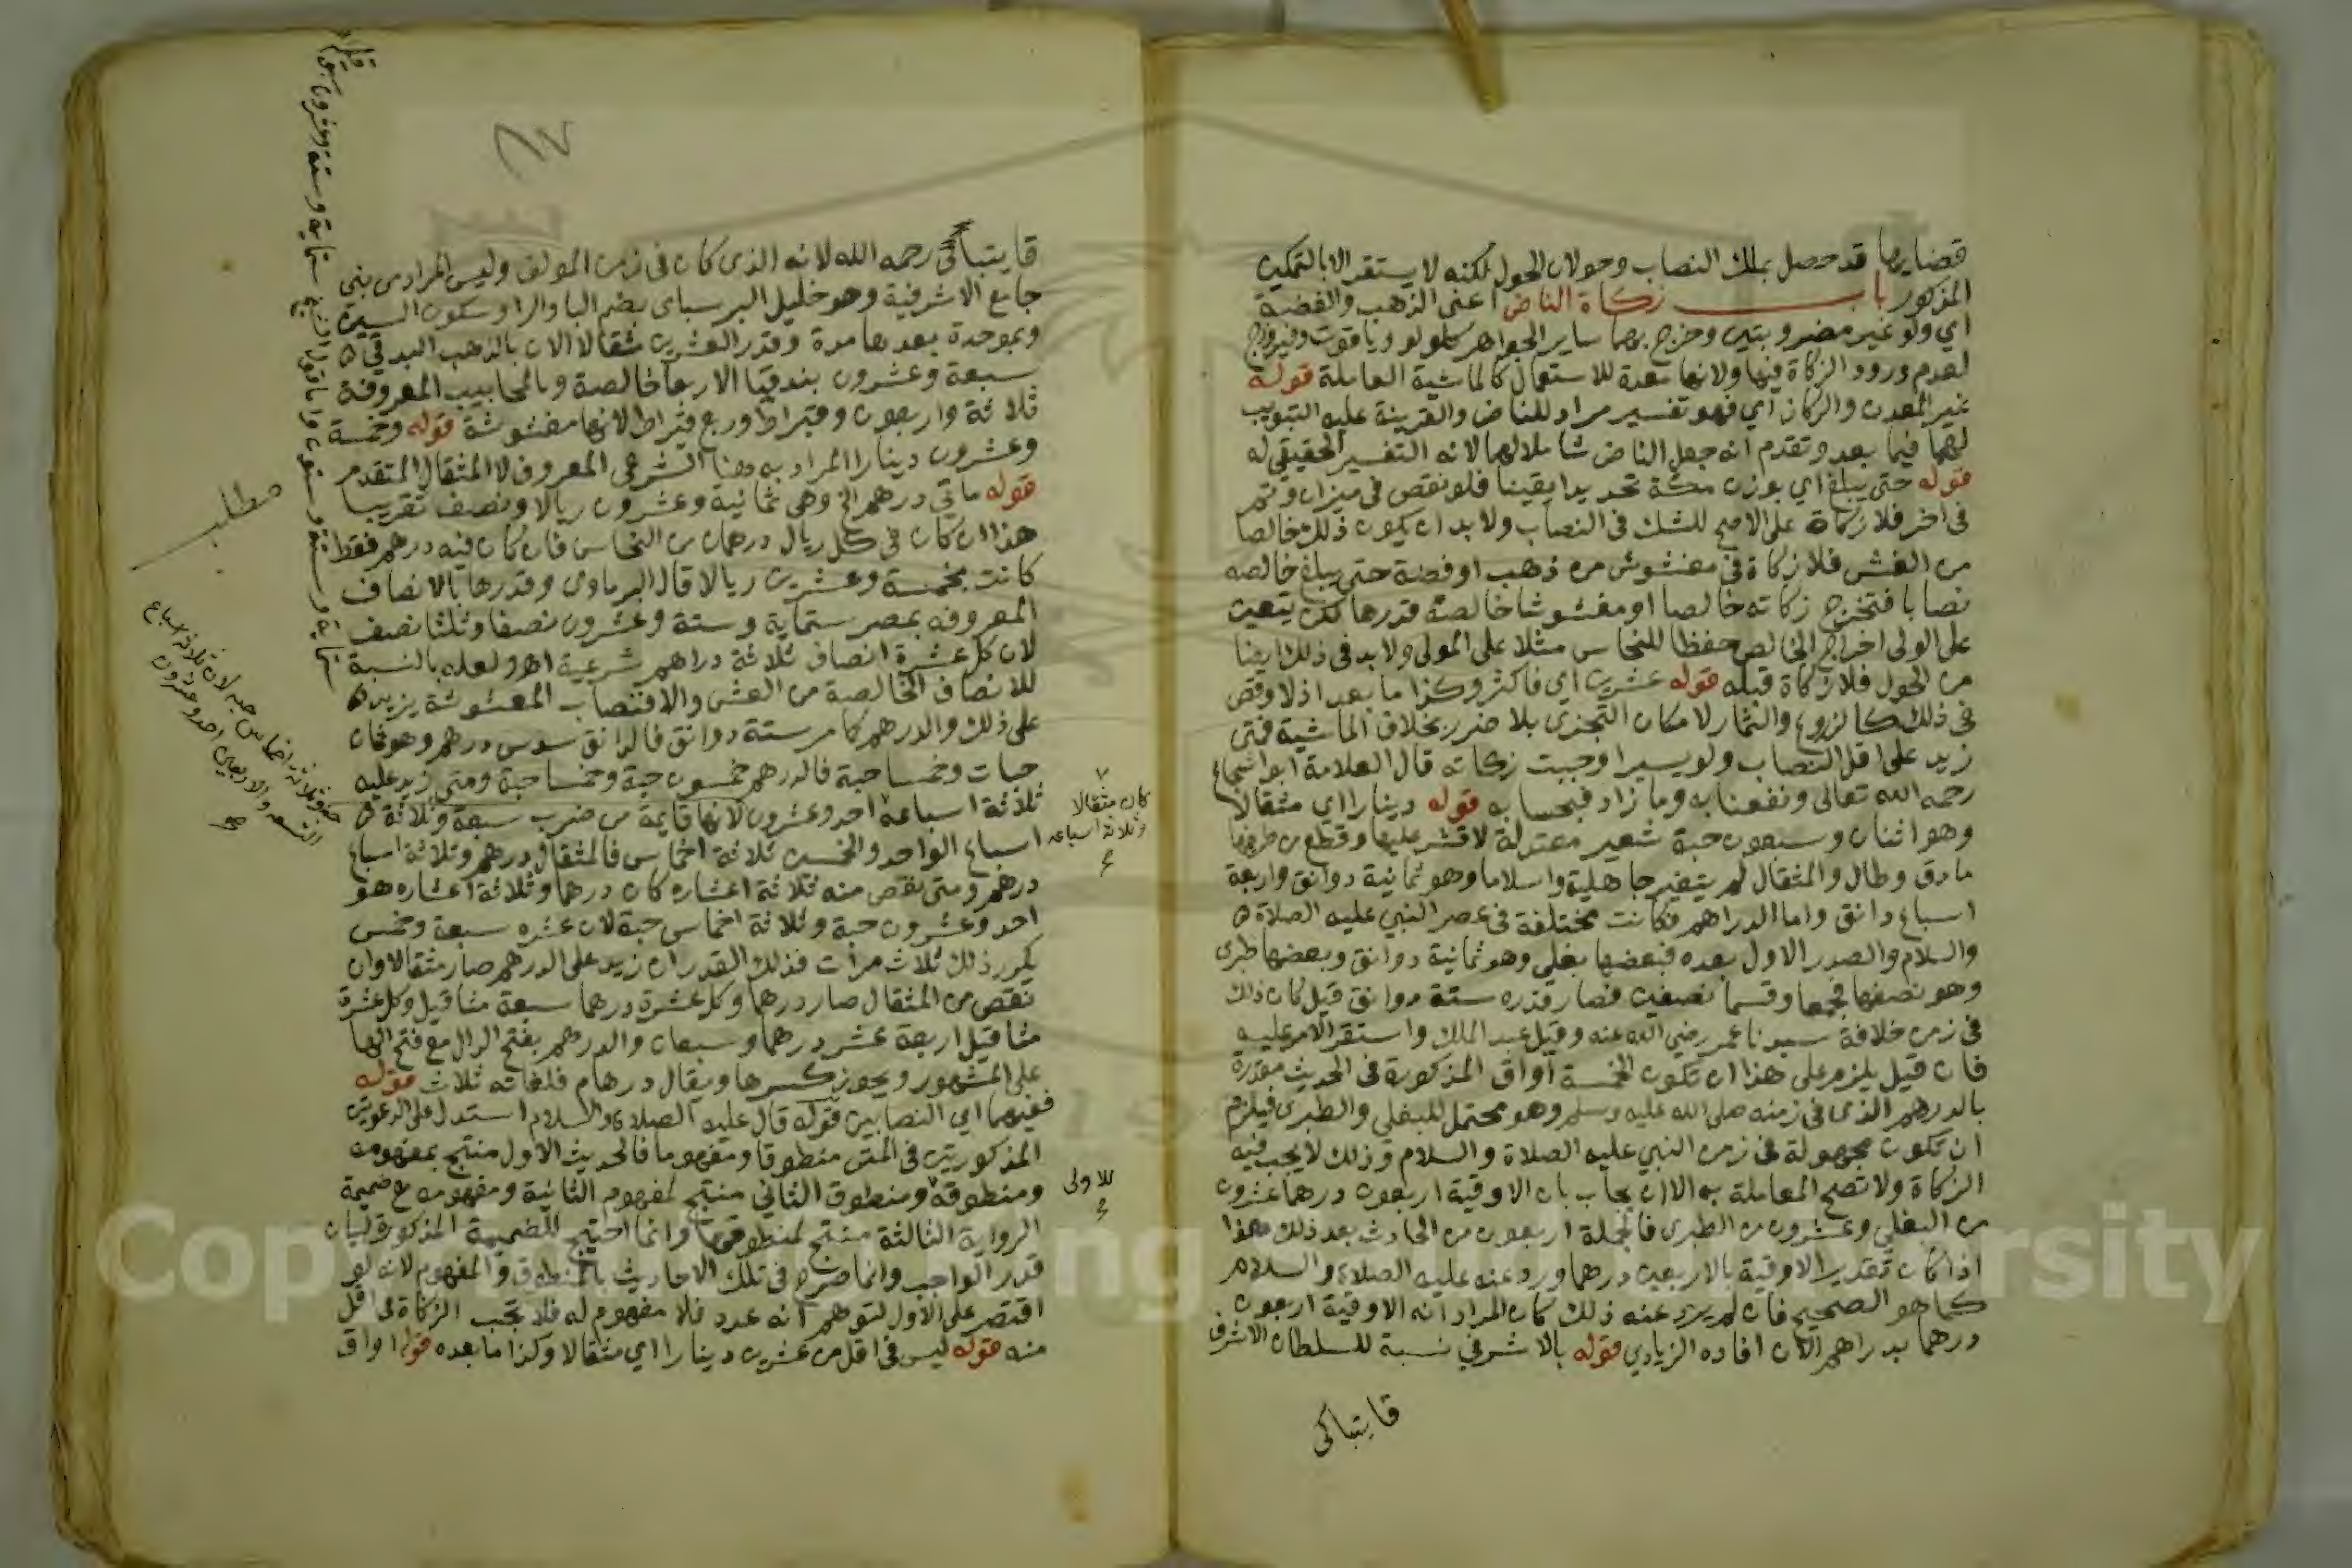 قضايرها قد حصل بملك النصاب وحولان الحول لكنه لا يستقر الا بالتمكين
المذكور باب زكاة الناض اعنى الذهب والفضة
اي ولو غير مضروبتين وخرج بهما ساير الجواهر كلولو وياقوت وفيروزج
لعدم ورود الزكاة فيها ولانها معدة للاستعمال كالماشية العاملة قوله
غير المعدن والركاز اي فهو تفسير مراد للناض والقرينة عليه التبويب
لهما فيما بعد وتقدم انه جعل الناض شاملا لهما لانه التفسير الحقيقي له
قوله حتى يبلغ اي بوزن مكة تحديدا يقينا فلو نقص فى ميزان وتم
فى اخر فلا زكاة على الاصح للشك فى النصاب ولا بد ان يكون ذلك خالصا
من الغش فلا زكاة فى مغشوش من ذهب او فضة حتى يبلغ خالصه
نصابا فتخرج زكاته خالصا او مغشوشا خالصه قدرها لكن يتعين
على الولى اخراج الخالص حفظا للنحاس مثلا على المولى ولا بد فى ذلك ايضا
من الحول فلا زكاة قبله قوله عشرين اي فاكثر وكذا ما بعد اذ لا وقص
فى ذلك كالزروع والثمار لامكان التجزى بلا ضرر بخلاف الماشية فمتى
زيد على اقل النصاب ولو يسيرا وجبت زكاته قال العلامة ابو شجاع
رحمه الله تعالى ونفعنا به وما زاد فبحسابه قوله دينارا اي مثقالا
وهو اثنان وسبعون حبة شعير معتدلة لا قشر عليها وقطع من طرفيها
ما دق وطال والمثقال لم يتغير جاهلية واسلاما وهو ثمانية دوانق واربعة
اسباع دانق واما الدراهم فكانت مختلفة فى عصر النبي عليه الصلاة
والسلام والصدر الاول بعده فبعضها بغلى وهو ثمانية دوانق وبعضها طبرى
وهو نصفها فجمعا وقسما نصفين فصار قدره ستة دوانق قيل كان ذلك
فى زمن خلافة سيدنا عمر رضي الله عنه وقيل عبد الملك واستقر الامر عليه
فان قيل يلزم على هذا ان تكون الخمسة اواق المذكورة فى الحديث مقدرة
بالدرهم الذى فى زمنه صلى الله عليه وسلم وهو محتمل للبغلى والطبرى فيلزم
ان تكون مجهولة فى زمن النبي عليه الصلاة والسلام وذلك لا يجب فيه
الزكاة ولا تصح المعاملة به الا ان يجاب بان الاوقية اربعون درهما عشرون
من البغلى وعشرون من الطبرى فالجملة اربعون من الحادث بعد ذلك هذا
اذا كان تقدير الاوقية بالاربعين درهما ورد عنه عليه الصلاة والسلام
كما هو الصحيح فان لم يرد عنه ذلك كان المراد انه الاوقية اربعون
درهما بدراهم الآن افاده الزيادي قوله بالاشرفي نسبة للسلطان الاشرف
قايتباى
قايتباى رحمه الله لانه الذى كان فى زمن المولف وليس المراد من بنى
جامع الاشرفية وهو خليل البرسباى بضم البا والرا وسكون السين
وبموحدة بعدها مدة وقدر العشرين مثقالا الان بالذهب البندقي
سبعة وعشرون بندقيا الا ربعا خالصة وبالمحابيب المعروفة
ثلاثة واربعون وقيراط وربع قيراط لانها مغشوشة قوله وخمسة
وعشرون دينارا المراد به هنا الشرعى المعروف لا المثقال المتقدم
قوله ماتي درهم الخ وهى ثمانية وعشرون ريالا ونصف تقريبا
هذا ان كان فى كل ريال درهمان من النحاس فان كان فيه درهم فقط
كانت بخمسة وعشرين ريالا قال البرماوى وقدرها بالانصاف
المعروفه بمصر ستماية وستة وعشرون نصفا وثلثا نصف
لان كل عشرة انصاف ثلاثة دراهم شرعية اهو لعله بالنسبة
للانصاف الخالصة من الغش والا فنصاب المغشوشة يزيد
على ذلك والدرهم كما مر ستة دوانق فالدانق سدس درهم وهو ثمان
حبات وخمسا حبة فالدرهم خمسون حبة وخمسا حبة ومتى زيد عليه
ثلاثة اسباعه احد وعشرون لانها قايمة من ضرب سبعة وثلاثة
اسباع الواحد والخمسين ثلاثة اخماس فالمثقال درهم وثلاثة اسباع
درهم ومتى نقص منه ثلاثة اعشاره كان درهما وثلاثة اعشاره هو
احد وعشرون حبة وثلاثة اخماس حبة لان عشره سبعة وخمس
يكرر ذلك ثلاث مرات فذلك القدر ان زيد على الدرهم صار مثقالا وان
نقص من المثقال صار درهما وكل عشرة درهما سبعة مثاقيل وكل عشرة
مثاقيل اربعة عشر درهما وسبعان والدرهم بفتح الدال مع فتح الها
على المشهور ويجوز كسرها ويقال درهام فلغاته ثلاث قوله
ففيهما اي النصابين قوله قال عليه الصلاة والسلام استدل على الدعوتين
المذكورتين فى المتن منطوقا ومفهوما فالحديث الاول منتج بمفهومه
ومنطوقه ومنطوق الثاني منتج لمفهوم الثانية ومفهومه مع ضميمة
الرواية الثالثة منتج لمنطوقها وانما احتيج للضميمة المذكورة لبيان
قدر الواجب وانما صرح فى تلك الاحاديث بالمنطوق والمفهوم لانه لو
اقتصر على الاول لتوهم انه عدد فلا مفهوم له فلا تجب الزكاة فى اقل
منه قوله ليس فى اقل من عشرين دينارا اي مثقالا وكذا ما بعده قوله اواق
كان مثقالا
وثلاثة اسباعه
للاولى
مطلب
Copyright © King Saud University